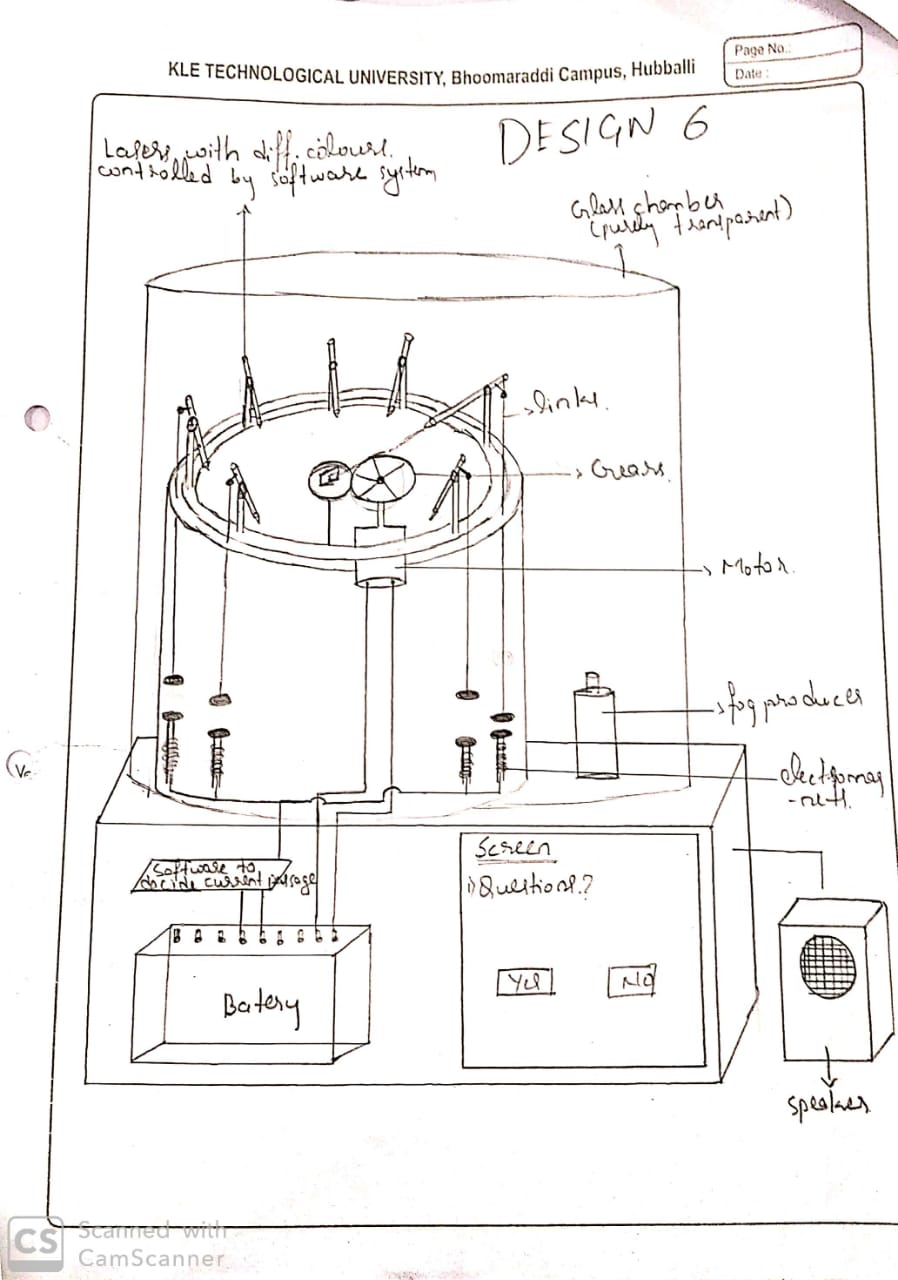 KLE TECHNOLOGICAL UNIVERSITY, Bhoomaraddi Campus, Hubballi
Page No.:
Date :
DESIGN 6
Lasers with diff. colours.
controlled by software system
Glass chamber
(purely transparent)
links.
Gears
Motor.
fog producer
electromag
-nets.
Software to
decide current passage
Battery
Screen
1) Questions.?
Yes
No
Speaker
CS Scanned with
CamScanner